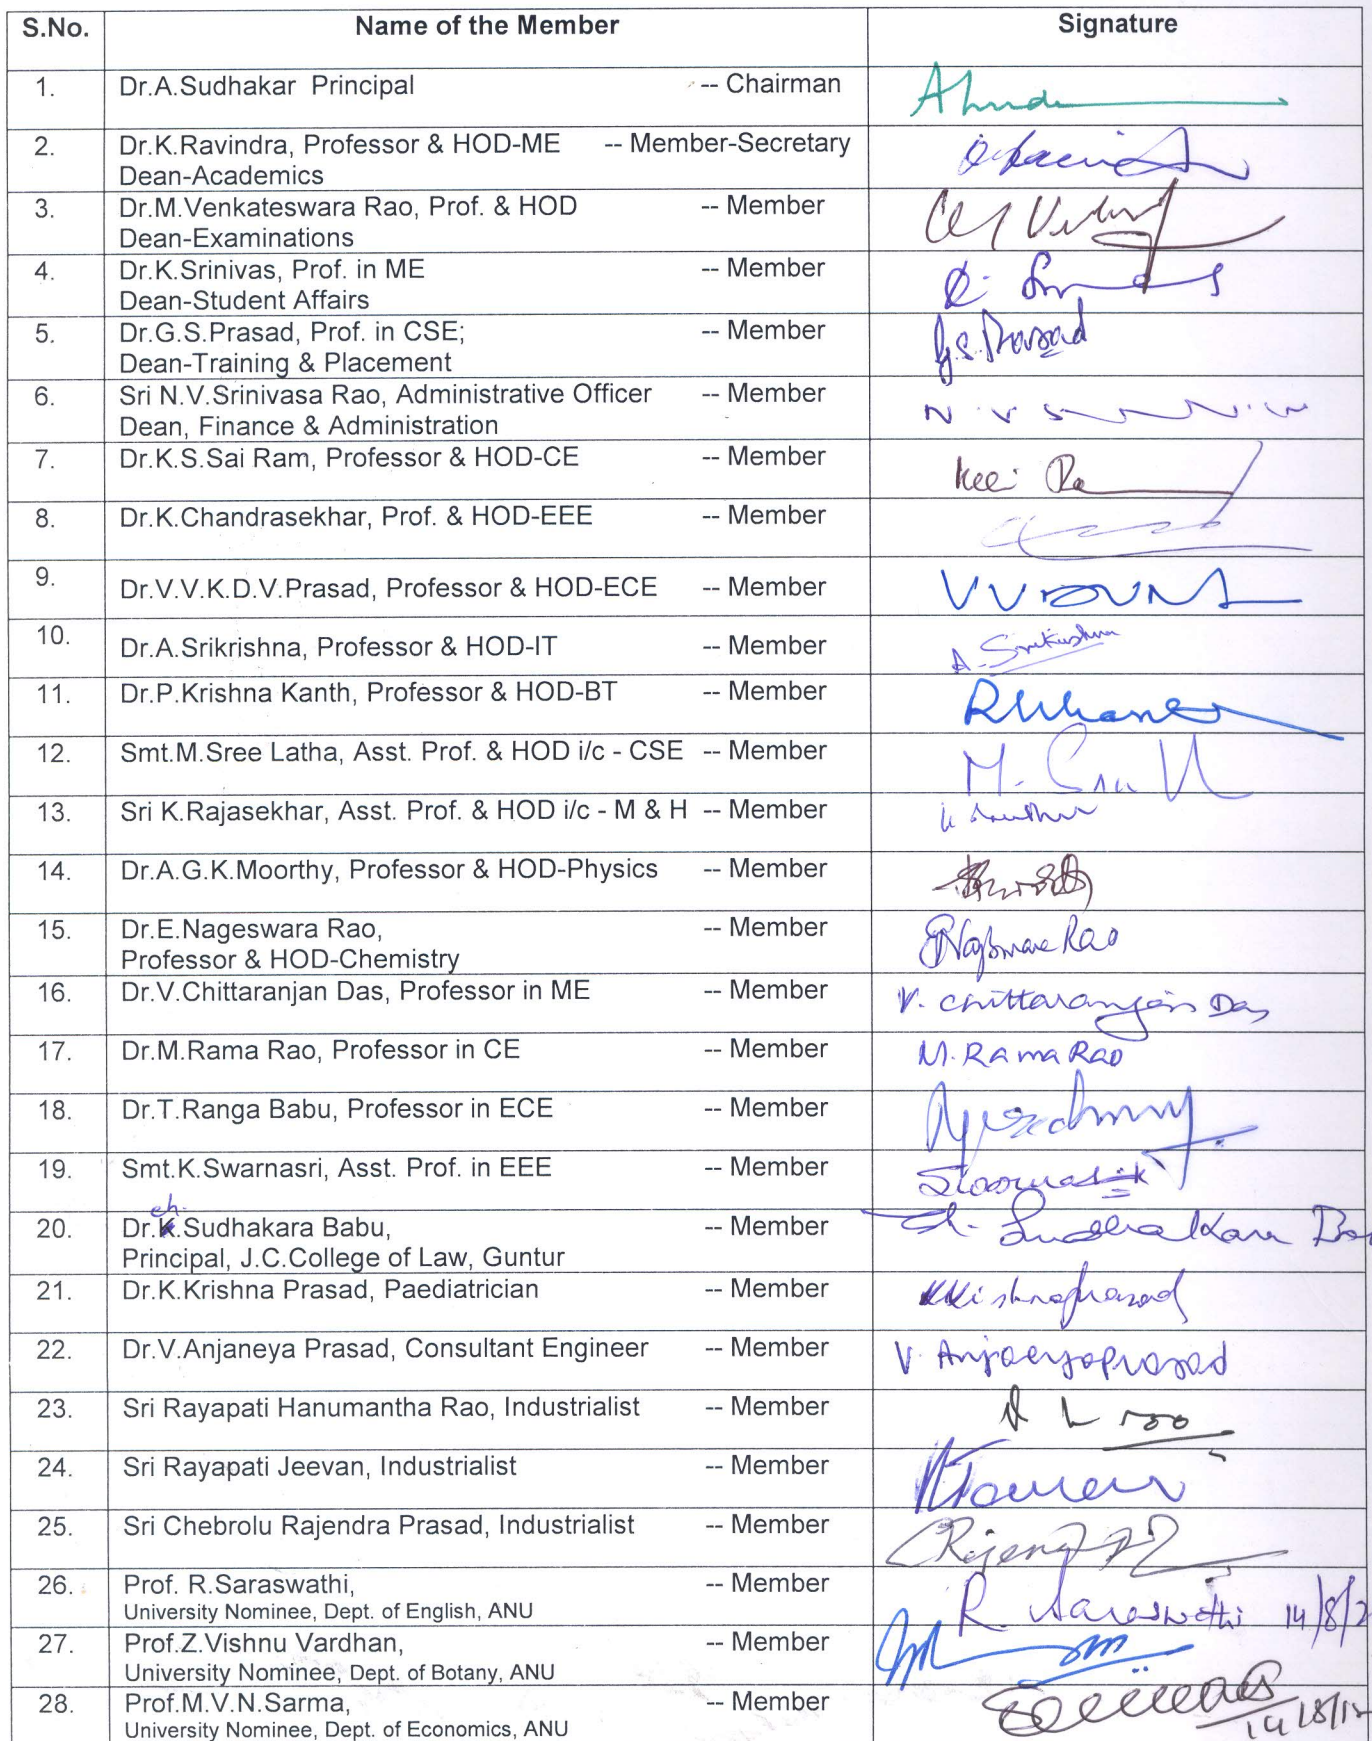 S.No. Name of the Member Signature
1. Dr.A.Sudhakar Principal -- Chairman
2. Dr.K.Ravindra, Professor & HOD-ME -- Member-Secretary
Dean-Academics
3. Dr.M.Venkateswara Rao, Prof. & HOD -- Member
Dean-Examinations
4. Dr.K.Srinivas, Prof. in ME -- Member
Dean-Student Affairs
5. Dr.G.S.Prasad, Prof. in CSE; -- Member G.S.Prasad
Dean-Training & Placement
6. Sri N.V.Srinivasa Rao, Administrative Officer -- Member N.V.S
Dean, Finance & Administration
7. Dr.K.S.Sai Ram, Professor & HOD-CE -- Member
8. Dr.K.Chandrasekhar, Prof. & HOD-EEE -- Member
9. Dr.V.V.K.D.V.Prasad, Professor & HOD-ECE -- Member
10. Dr.A.Srikrishna, Professor & HOD-IT -- Member A.Srikrishna
11. Dr.P.Krishna Kanth, Professor & HOD-BT -- Member
12. Smt.M.Sree Latha, Asst. Prof. & HOD i/c - CSE -- Member M.
13. Sri K.Rajasekhar, Asst. Prof. & HOD i/c - M & H -- Member
14. Dr.A.G.K.Moorthy, Professor & HOD-Physics -- Member
15. Dr.E.Nageswara Rao, -- Member ENageswara Rao
Professor & HOD-Chemistry
16. Dr.V.Chittaranjan Das, Professor in ME -- Member V. Chittaranjan Das
17. Dr.M.Rama Rao, Professor in CE -- Member M.Rama Rao
18. Dr.T.Ranga Babu, Professor in ECE -- Member
19. Smt.K.Swarnasri, Asst. Prof. in EEE -- Member
ch.
20. Dr.K.Sudhakara Babu, -- Member Ch. Sudhakara Ba
Principal, J.C.College of Law, Guntur
21. Dr.K.Krishna Prasad, Paediatrician -- Member KKrishnaprasad
22. Dr.V.Anjaneya Prasad, Consultant Engineer -- Member V. Anjaneyaprasad
23. Sri Rayapati Hanumantha Rao, Industrialist -- Member
24. Sri Rayapati Jeevan, Industrialist -- Member
25. Sri Chebrolu Rajendra Prasad, Industrialist -- Member
26. Prof. R.Saraswathi, -- Member R. Saraswathi 14/8/
University Nominee, Dept. of English, ANU
27. Prof.Z.Vishnu Vardhan, -- Member
University Nominee, Dept. of Botany, ANU
28. Prof.M.V.N.Sarma, -- Member
University Nominee, Dept. of Economics, ANU 14/8/12